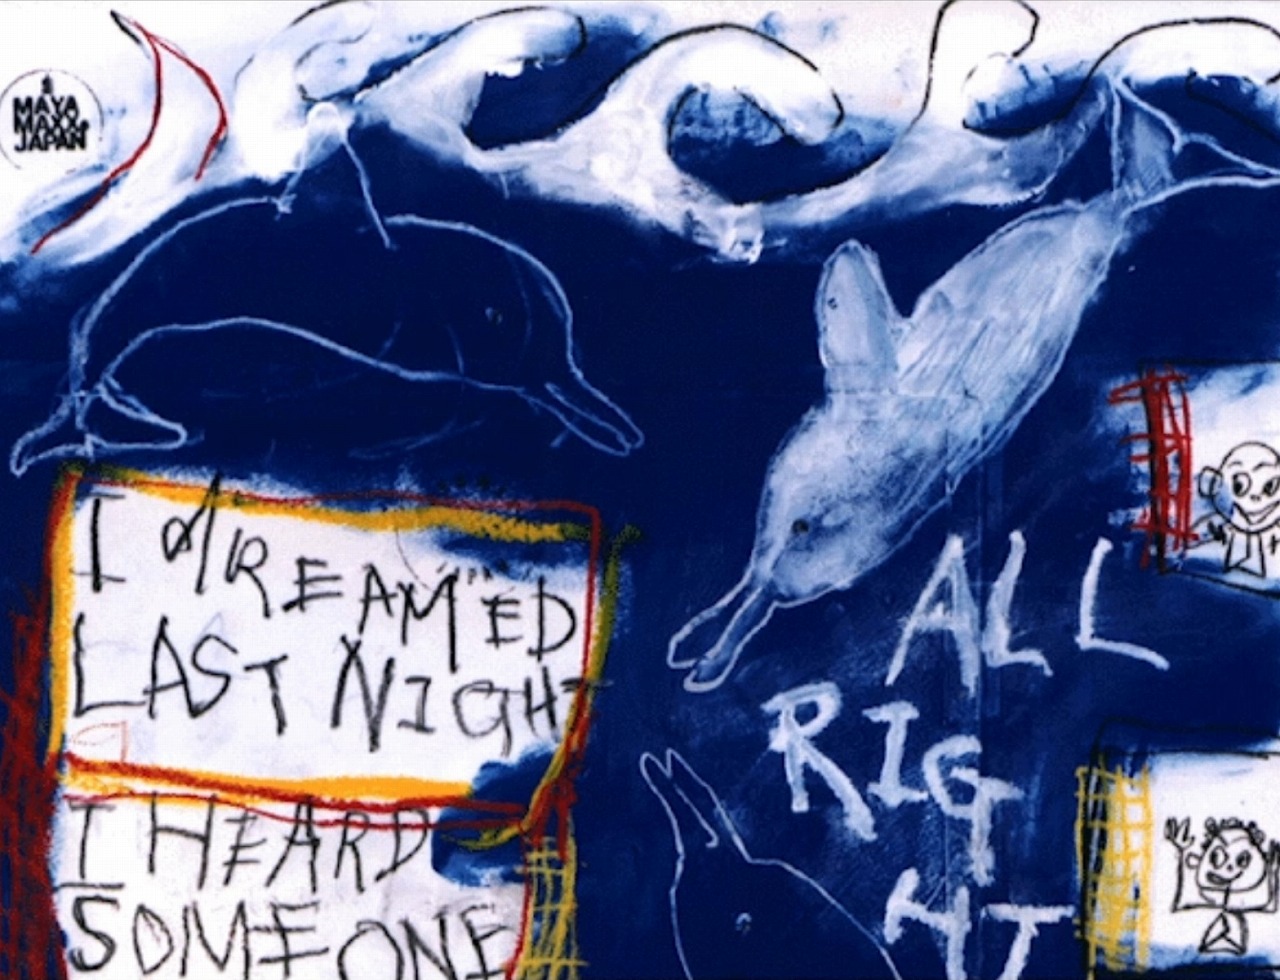 MAYA
MAXX
JAPAN
I dREAMED
LAST NIGHT
I HEARD
SOMEONE
ALL
RIG
HT